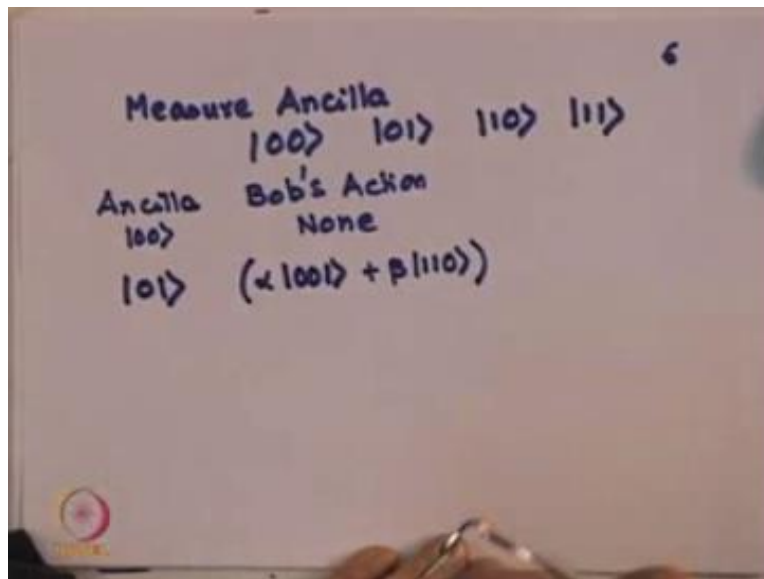 6
Measure Ancilla
|00⟩ |01⟩ |10⟩ |11⟩
Ancilla Bob's Action
|00⟩ None
|01⟩ (α|001⟩ + β|110⟩)